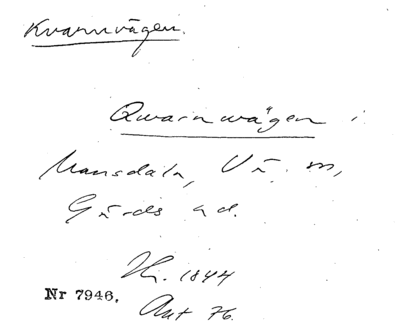 Kvarnvägen.
Qwarnwägen i
Mansdala, Vä. m,
Gärds hd.
Th. 1844
Nr 7946.
Akt 76.